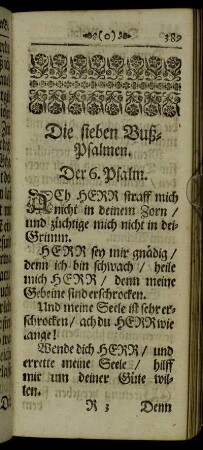 (o) 389
Die sieben Buß-
Psalmen.
Der 6. Psalm.
ACh HERR straff mich
nicht in deinem Zorn /
und züchtige mich nicht in dei-
Grimm.
HERR sey mir gnädig /
denn ich bin schwach / heile
mich HERR / denn meine
Gebeine sind erschrocken.
Und meine Seele ist sehr er-
schrocken / ach du HERR wie
lange!
Wende dich HERR / und
errette meine Seele / hilff
mir um deiner Güte wil-
len.
R 3 Denn